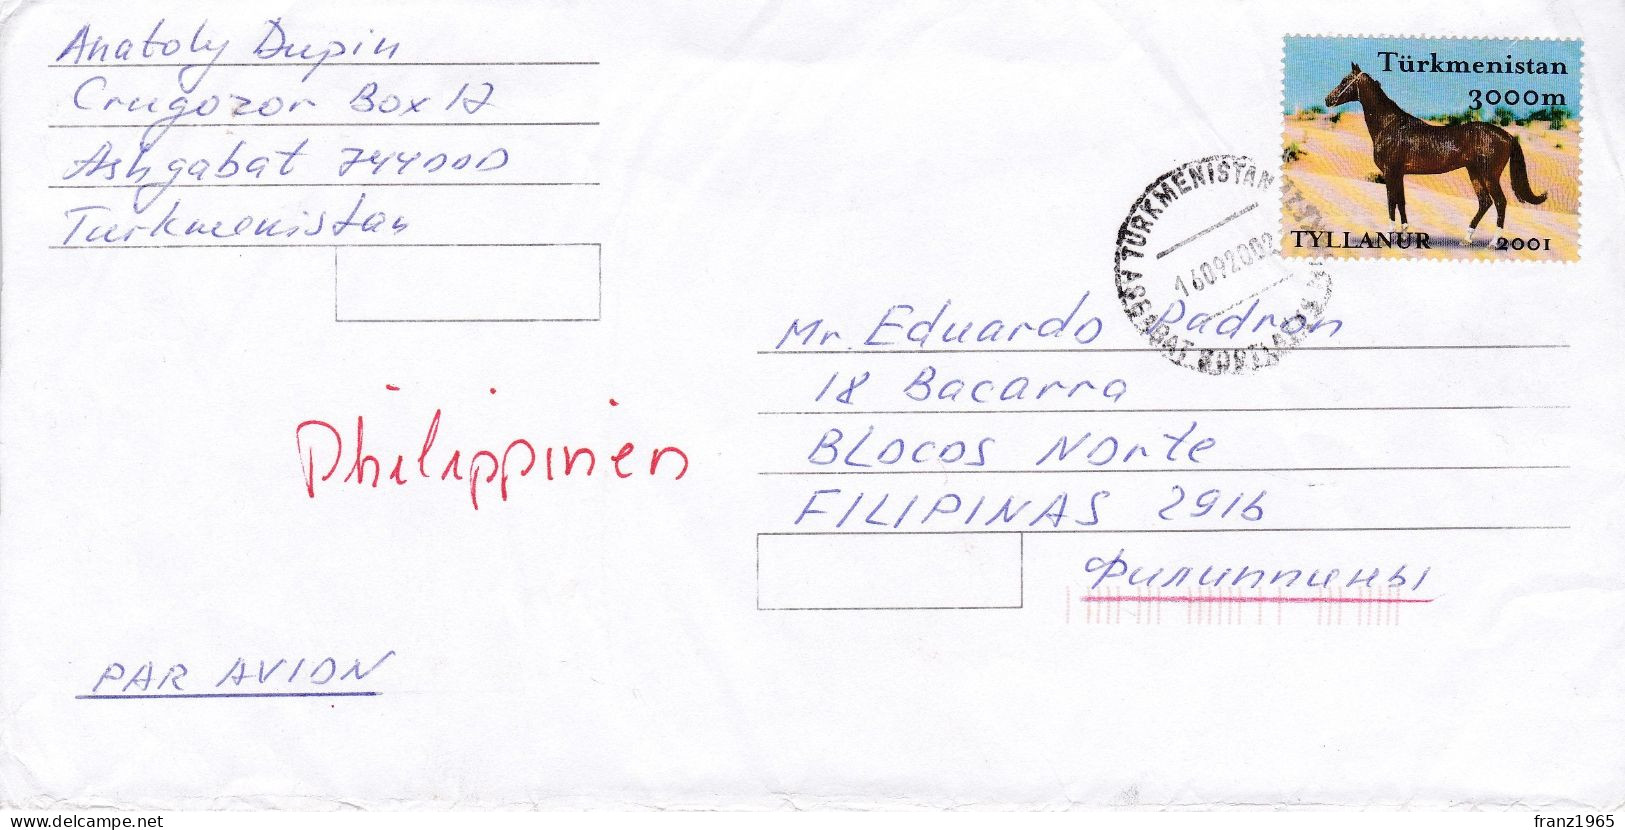 Anatoly Dupin
Crugozor Box 12
Ashgabat 744000
Turkmenistan
Türkmenistan
3000m
TYLLANUR 2001
TÜRKMENISTAN
16092002
Mr. Eduardo Padron
18 Bacarra
BLOCOS NORTE
FILIPINAS 2916
Филиппины
Philippinen
PAR AVION
franz1965